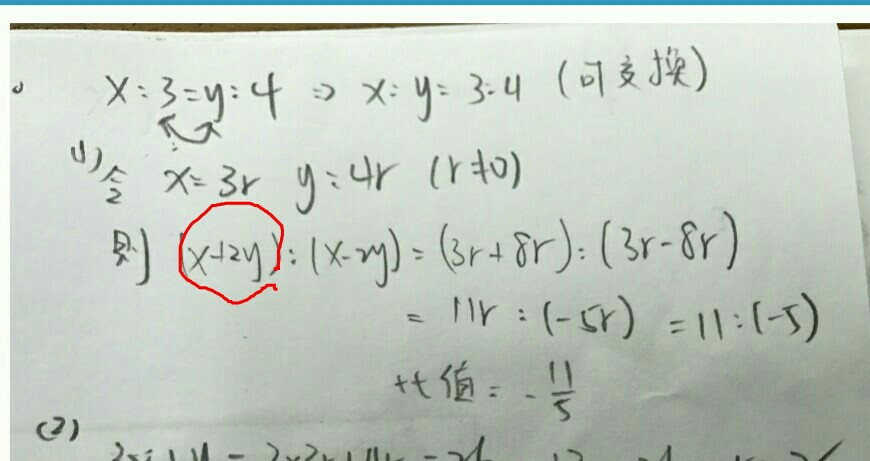 x:3=y:4 ⇒ x:y=3:4 (可交换)
(1) 令 x=3r y=4r (r≠0)
则 (x+2y):(x-2y)=(3r+8r):(3r-8r)
=11r:(-5r)=11:(-5)
比值=-11/5
(2)